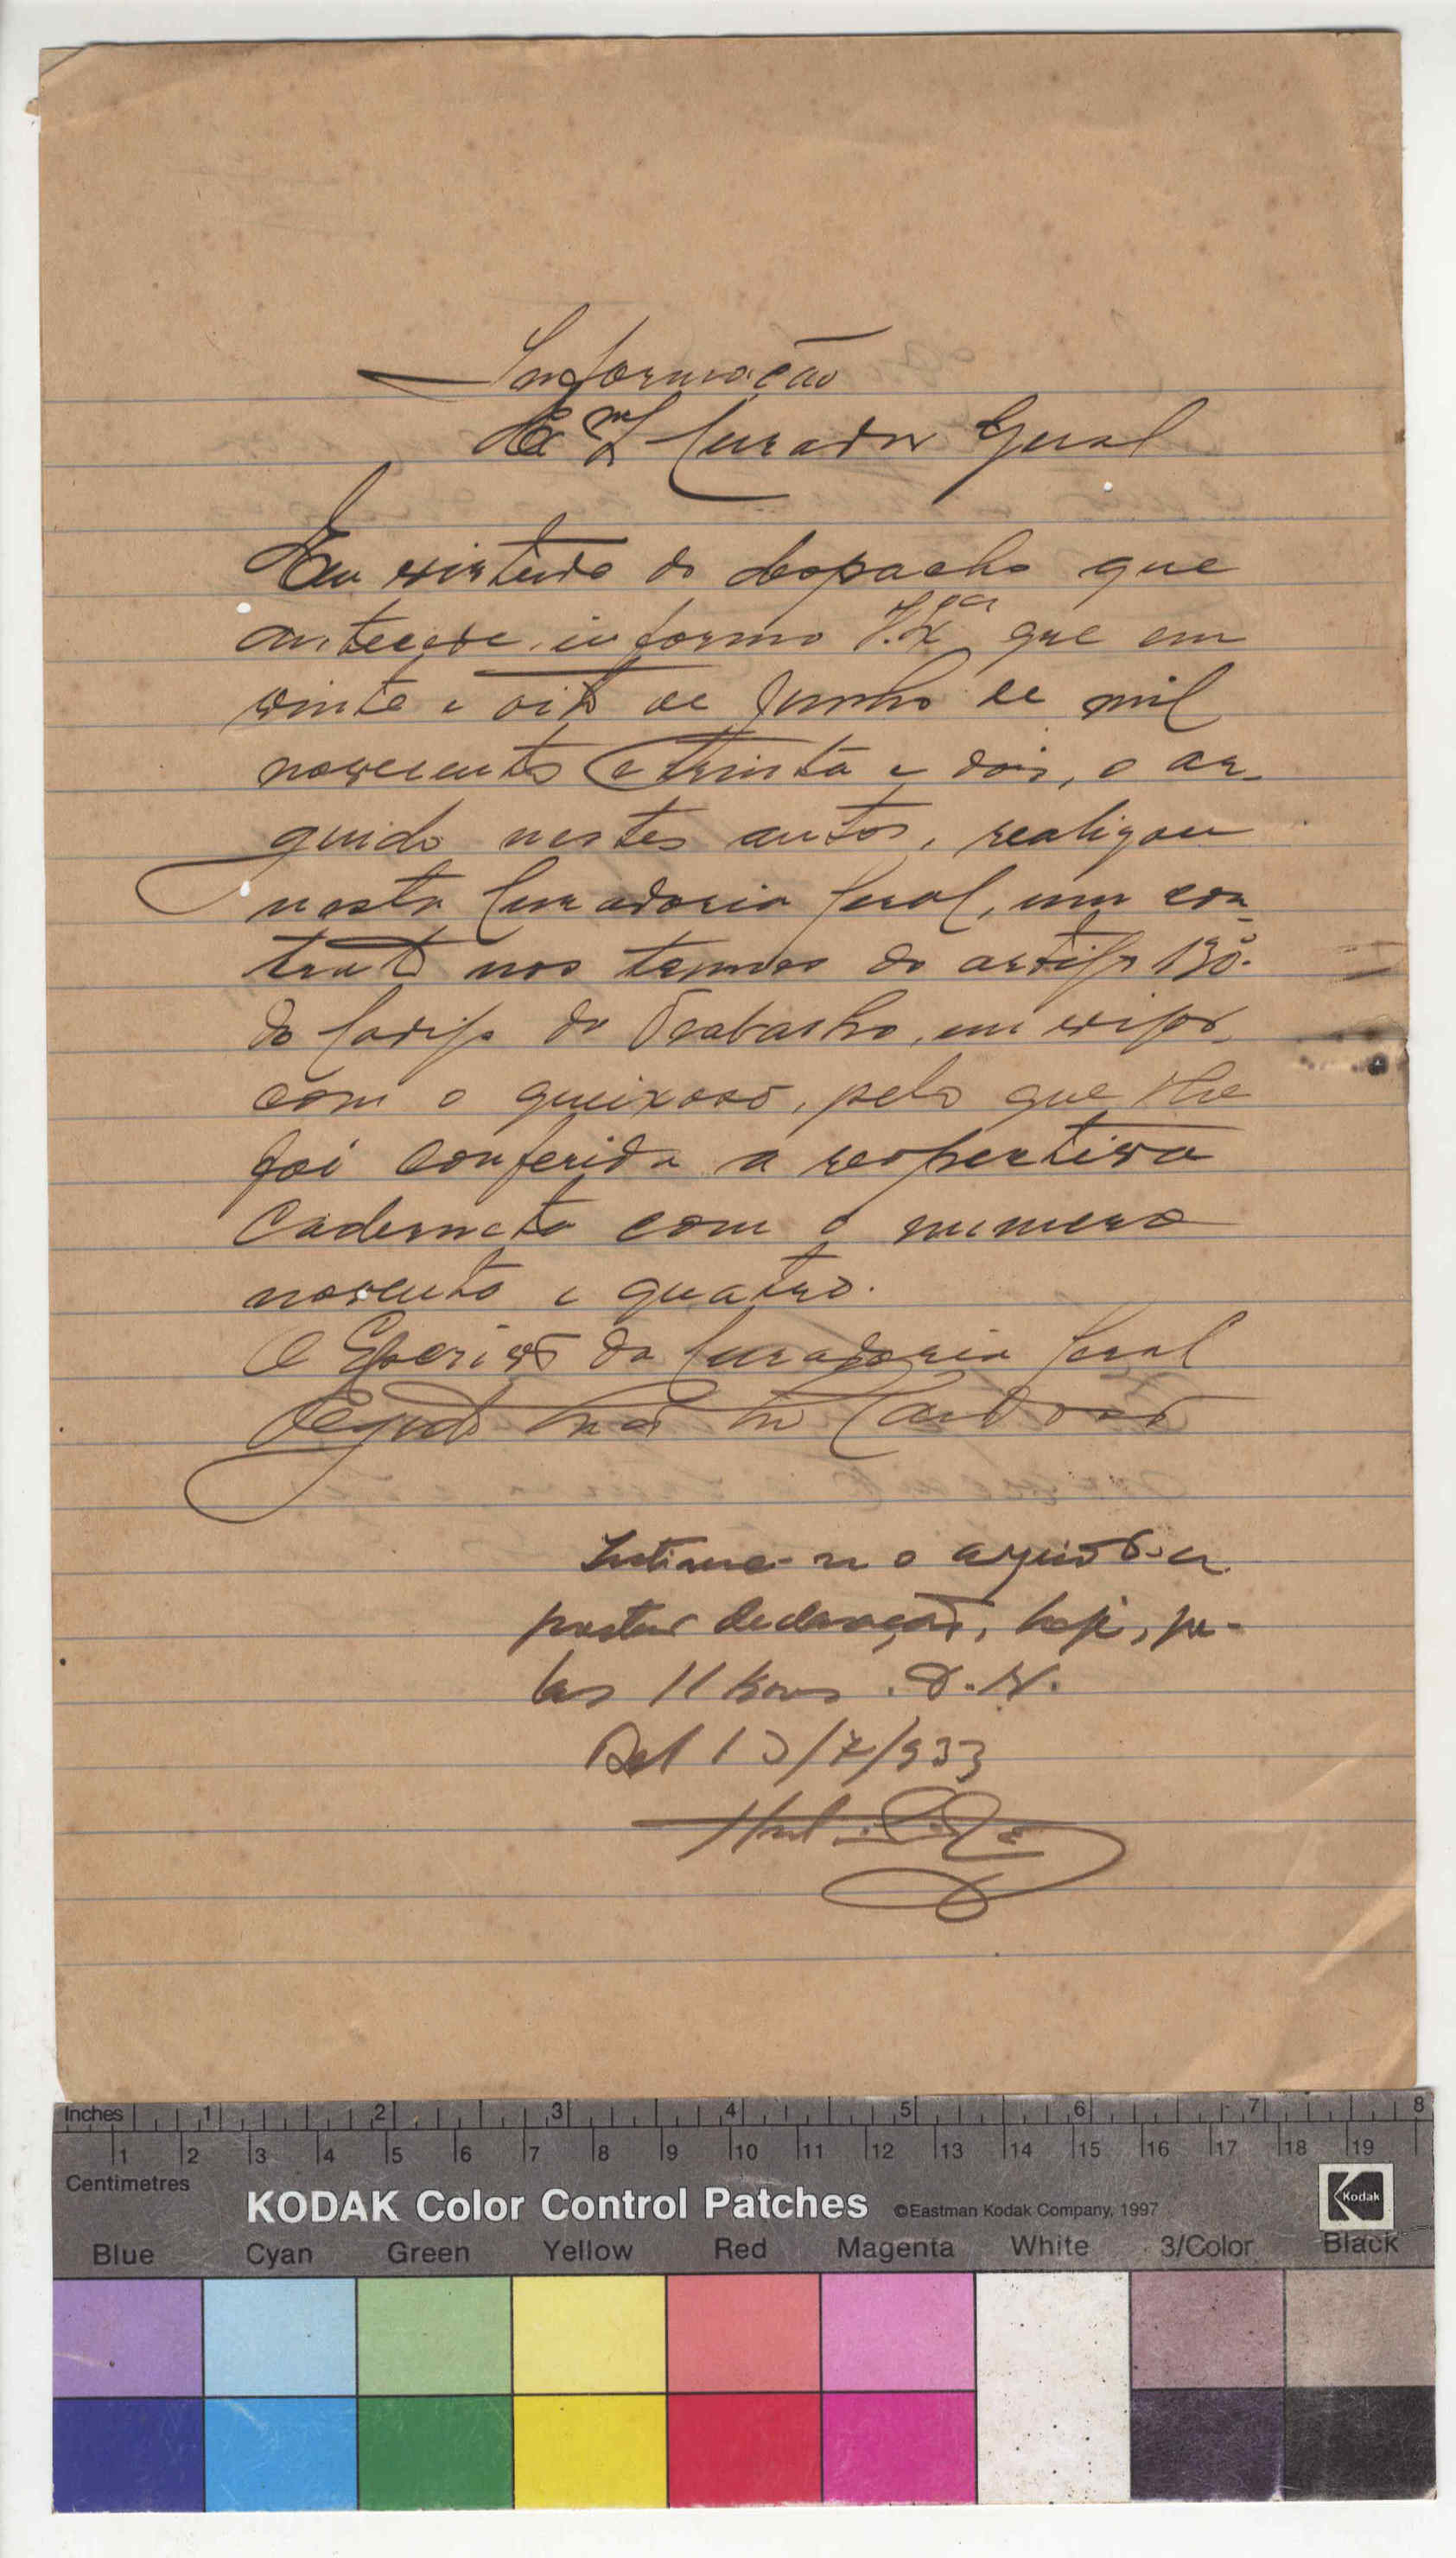 Informação
Exmo Sr Curador Geral
Em virtude do despacho que
antecede, informo V. Exa que em
vinte e oito de Junho de mil
novecentos e trinta e dois, o ar-
guido nestes autos, realizou
nesta Curadoria Geral, um con-
trato nos termos do artigo 130º.
do Codigo do Trabalho, em vigor,
com o queixoso, pelo que lhe
foi conferida a respectiva
Caderneta com o numero
noventa e quatro.
O Escrivão da Curadoria Geral
Intime-se o arguido a
prestar declarações, hoje, pe-
las 11 horas. D. N.
13/7/933
Inches 1 2 3 4 5 6 7 8
1 2 3 4 5 6 7 8 9 10 11 12 13 14 15 16 17 18 19
Centimetres
KODAK Color Control Patches ©Eastman Kodak Company, 1997 Kodak
Blue Cyan Green Yellow Red Magenta White 3/Color Black